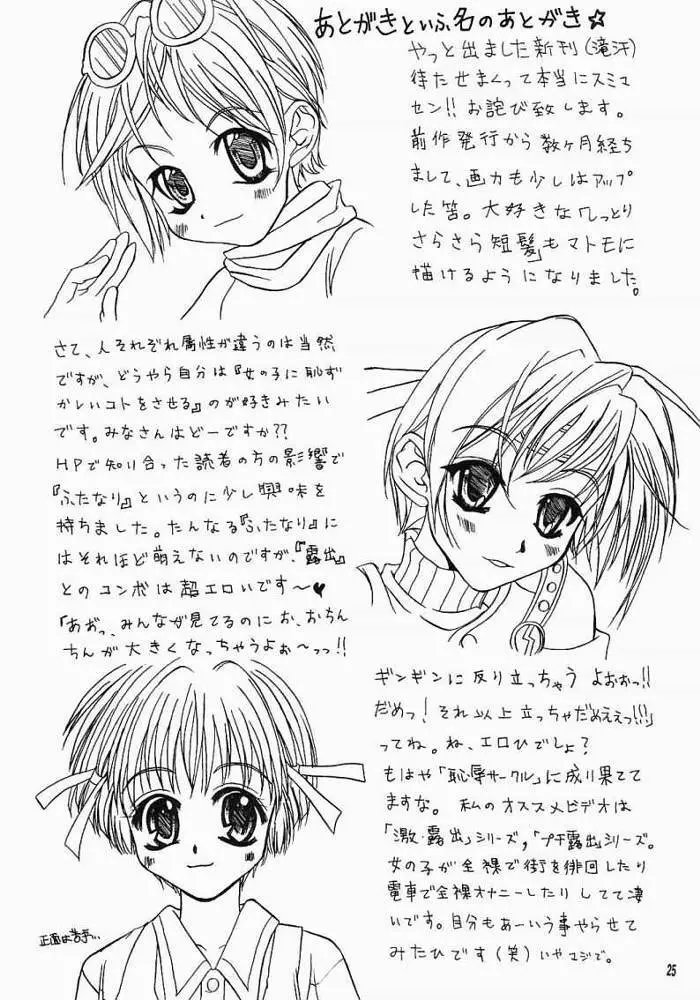 あとがきといふ名のあとがき☆
やっと出ました新刊(滝汗)
待たせまくって本当にスミマ
セン!! お詫び致します。
前作発行から数ヶ月経ち
まして、画力も少しはアップ
した筈。大好きな「しっとり
さらさら短髪」もマトモに
描けるようになりました。
さて、人それぞれ属性が違うのは当然
ですが、どうやら自分は『女の子に恥ず
かしいコトをさせる』のが好きみたい
です。みなさんはどーですか??
HPで知り合った読者の方の影響で
『ふたなり』というのに少し興味を
持ちました。たんなる『ふたなり』に
はそれほど萌えないのですが、『露出』
とのコンボは超エロいです〜♥
「あおっ、みんなが見てるのにお、おちん
ちんが大きくなっちゃうよぉ〜っっ!!
ギンギンに反り立っちゃうよおおっ!!
だめっ! それ以上立っちゃだめええっ!!!」
ってね。ね、エロひでしょ?
もはや「恥辱サークル」に成り果てて
ますな。私のオススメビデオは
「激・露出」シリーズ,「プチ露出」シリーズ。
女の子が全裸で街を徘回したり
電車で全裸オナニーしたりしてて凄
いです。自分もあーいう事やらせて
みたひです(笑)いやマジで。
正面は苦手…
25